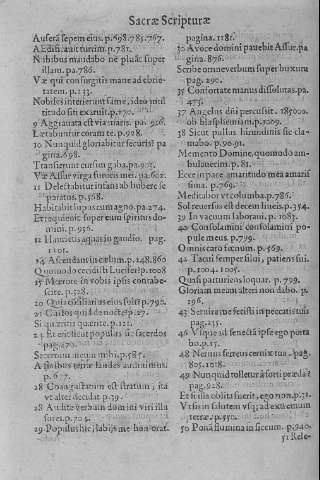 Sacræ Scripturæ
Auferā sepem eius. p.698.785.767.
Ædifi. auit turrim. p.781.
Nubibus mandabo ne pluāt super
illam. pa.786.
Væ qui consurgitis mane ad ebrie-
tatem. p.133.
Nobiles interierunt fame, ideo mul
titudo siti exaruit, p.170.
9 Aggrauata est via maris. pa.925.
Lætabuntur coram te. p.928.
10 Nunquid gloriabitur securis? pa
gina.698.
Transierunt cursim gaba, pa.905.
Væ Assur virga furoris mei. pa.602.
11 Delectabitur infans ab vbere se
paratus. p.568.
Habitabit lupus cum agno. pa.274.
Et requiescet super eum spiritus do-
mini. p. 956.
12 Haurietis aquas in gaudio. pag.
1201.
14 Ascendam in cælum. p.248.860
Quomodo cecidisti Lucifer? p.1008
15 Mœrore in vobis ipsis contabe-
scite. p.528.
20
21 Custos quid de nocte, p.27.
Si quæritis quærite. p.121.
24 Et erit sicut populus sic sacerdos
pag.270.
Secretum meum mihi, p.585.
A finibus terræ laudes audiuimus.
p.657.
28 Coangustatum est stratum, ita
vt alter decidat. p.39.
28 Audite verbum domini viri illu
sores. p.704.
29 Populus hic labijs me honorat.
pagina.1181.
30 A voce domini pauebit Assur. pa
gina. 876.
Scribe omne verbum super buxum
pag. 290.
35 Confortate manus dissolutas. pa.
475.
37 Angelus dñi percussit. 185000.
ob blasphemiam. p.1069.
38 Sicut pullus hirundinis sic cla-
mabo. p.90.91.
Memento Domine, quomodo am-
bulauerim. p. 81.
Ecce in pace amaritudo mea amaris
sima. p.769.
Meditabor vt columba. p.786.
Sol reuersus est decem lineis. p.354.
39 In vacuum laboraui. p. 1083.
40 Consolamini consolamini po-
pule meus, p.739.
Omnis caro fœnum. p.569.
42 Tacui semper silui, patiens fui.
p. 1004. 1005.
Quasi parturiens loquar. p. 799.
Gloriam meam alteri non dabo. p.
296.
43 Seruire me fecisti in peccatis tuis
pag.235.
46 Vsque ad senectā ipse ego porta
bo. p.15.
48 Neruus ferreus ceruix tua. pag.
805. 1018.
49 Nunquid tolletur à forti præda?
pag.928.
Et si illa oblita fuerit, ego non. p.31.
Vt sis in salutem vsq; ad extremum
terræ. p.550.
50 Ponā flumina in siccum. p.940.
51 Rele-